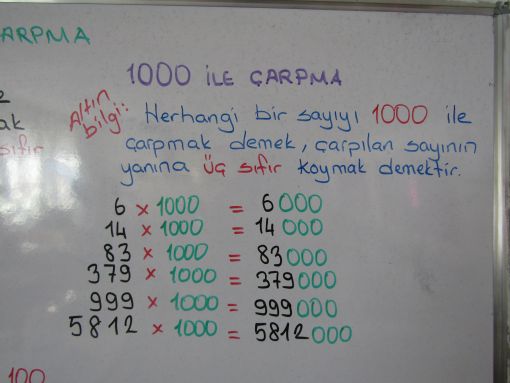 ARPMA
1000 İLE ÇARPMA
Altın bilgi: Herhangi bir sayıyı 1000 ile
ak
sıfır
çarpmak demek, çarpılan sayının
yanına üç sıfır koymak demektir.
6 × 1000 = 6000
14 × 1000 = 14 000
83 × 1000 = 83000
379 × 1000 = 379000
999 × 1000 = 999000
5812 × 1000 = 5812000
100